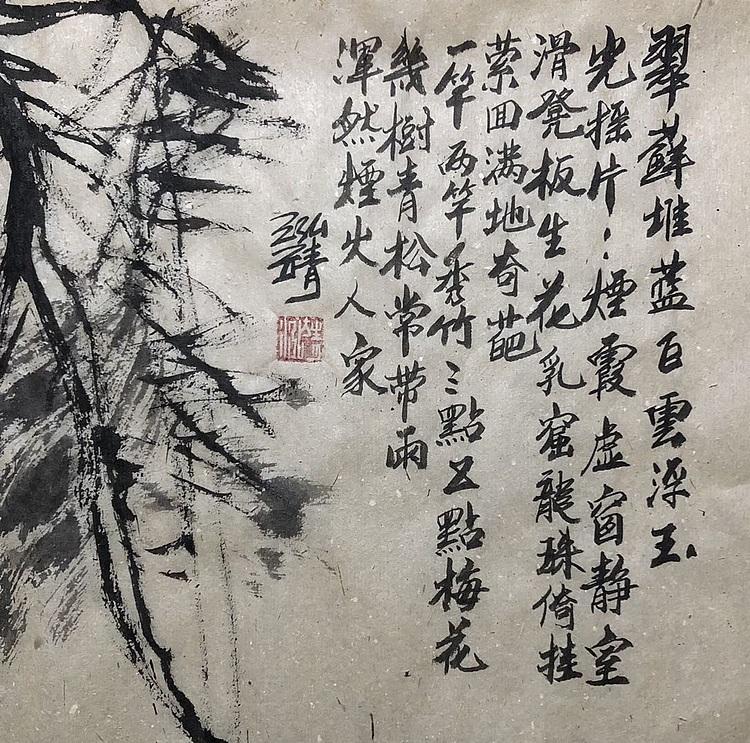 翠蘚堆藍白雲浮玉
光搖片〻煙霞虛窗靜室
滑凳板生花乳窟龍珠倚挂
縈回滿地奇葩
一竿兩竿秀竹三點五點梅花
幾樹青松常带雨
渾然煙火人家